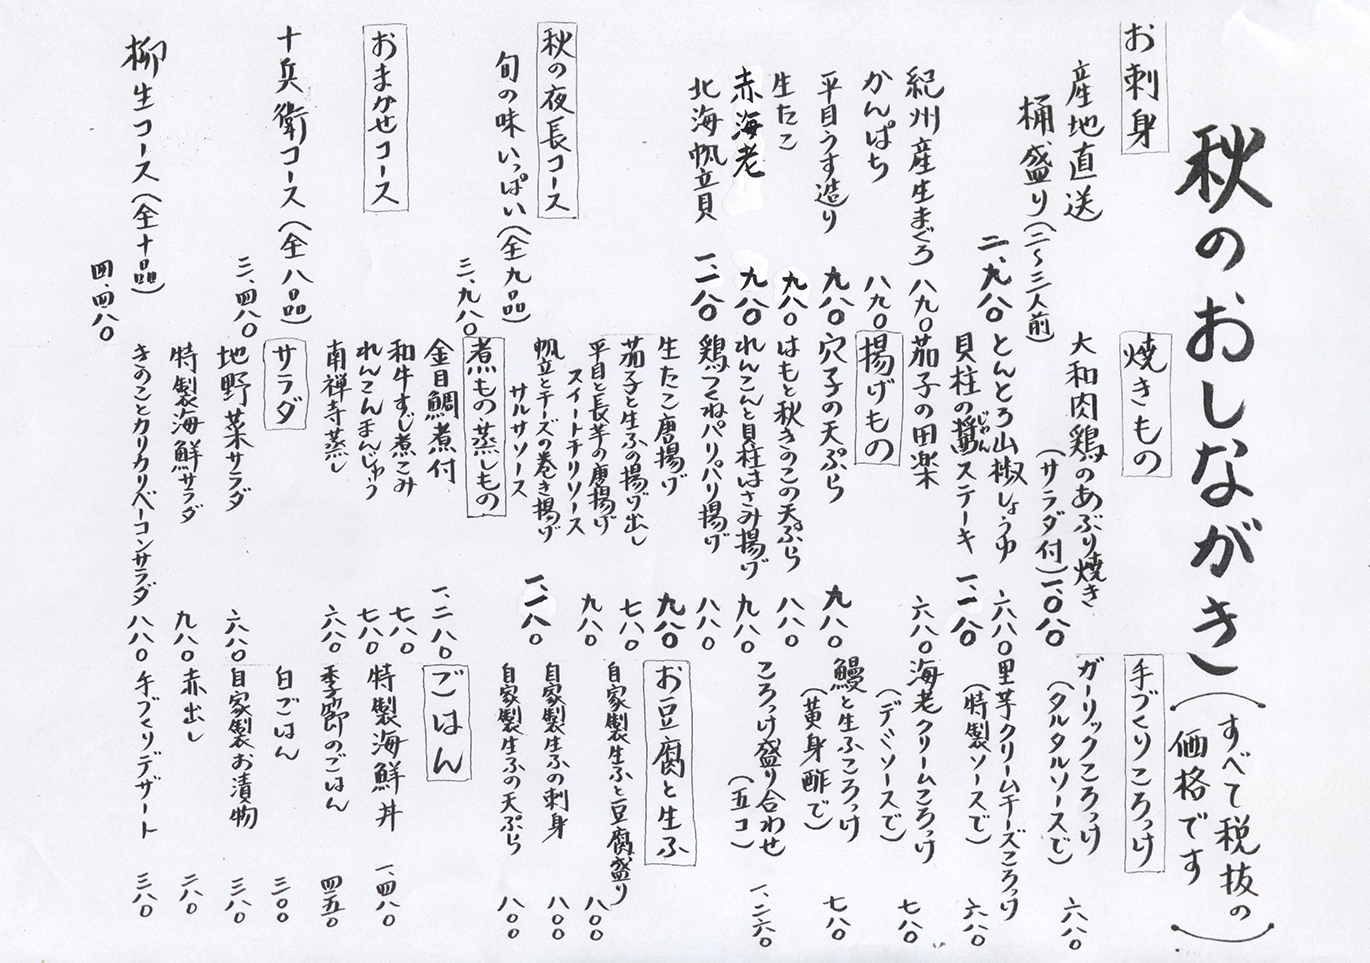 秋のおしながき
(すべて税抜の
価格です)
お刺身
産地直送
桶盛り(二〜三人前)
二、九八〇
紀州産生まぐろ 八九〇
かんぱち 八九〇
平目うす造り 九八〇
生たこ 九八〇
赤海老 九八〇
北海帆立貝 一、二八〇
秋の夜長コース
旬の味いっぱい(全九品)
三、九八〇
おまかせコース
十兵衛コース(全八品)
三、四八〇
柳生コース(全十品)
四、四八〇
焼きもの
大和肉鶏のあぶり焼き
(サラダ付)一、〇八〇
とんとろ山椒しょうゆ 六八〇
貝柱の醬ステーキ 一、二八〇
じゃん
茄子の田楽 六八〇
揚げもの
穴子の天ぷら 九八〇
はもと秋きのこの天ぷら 八八〇
れんこんと貝柱はさみ揚げ 九八〇
鶏つくねパリパリ揚げ 八八〇
生たこ唐揚げ 九八〇
茄子と生ふの揚げ出し 七八〇
平目と長芋の唐揚げ
スイートチリソース 九八〇
帆立とチーズの巻き揚げ
サルサソース 一、二八〇
煮もの・蒸しもの
金目鯛煮付 一、二八〇
和牛すじ煮こみ 七八〇
れんこんまんじゅう 七八〇
南禅寺蒸し 六八〇
サラダ
地野菜サラダ 六八〇
特製海鮮サラダ 九八〇
きのことカリカリベーコンサラダ 八八〇
手づくりころっけ
ガーリックころっけ
(タルタルソースで) 六八〇
里芋クリームチーズころっけ
(特製ソースで) 六八〇
海老クリームころっけ
(デミソースで) 七八〇
鰻と生ふころっけ
(黄身酢で) 七八〇
ころっけ盛り合わせ
(五コ) 一、二六〇
お豆腐と生ふ
自家製生ふと豆腐盛り 八〇〇
自家製生ふの刺身 八〇〇
自家製生ふの天ぷら 八〇〇
ごはん
特製海鮮丼 一、四八〇
季節のごはん 四五〇
白ごはん 三〇〇
自家製お漬物 三八〇
赤出し 二八〇
手づくりデザート 三八〇